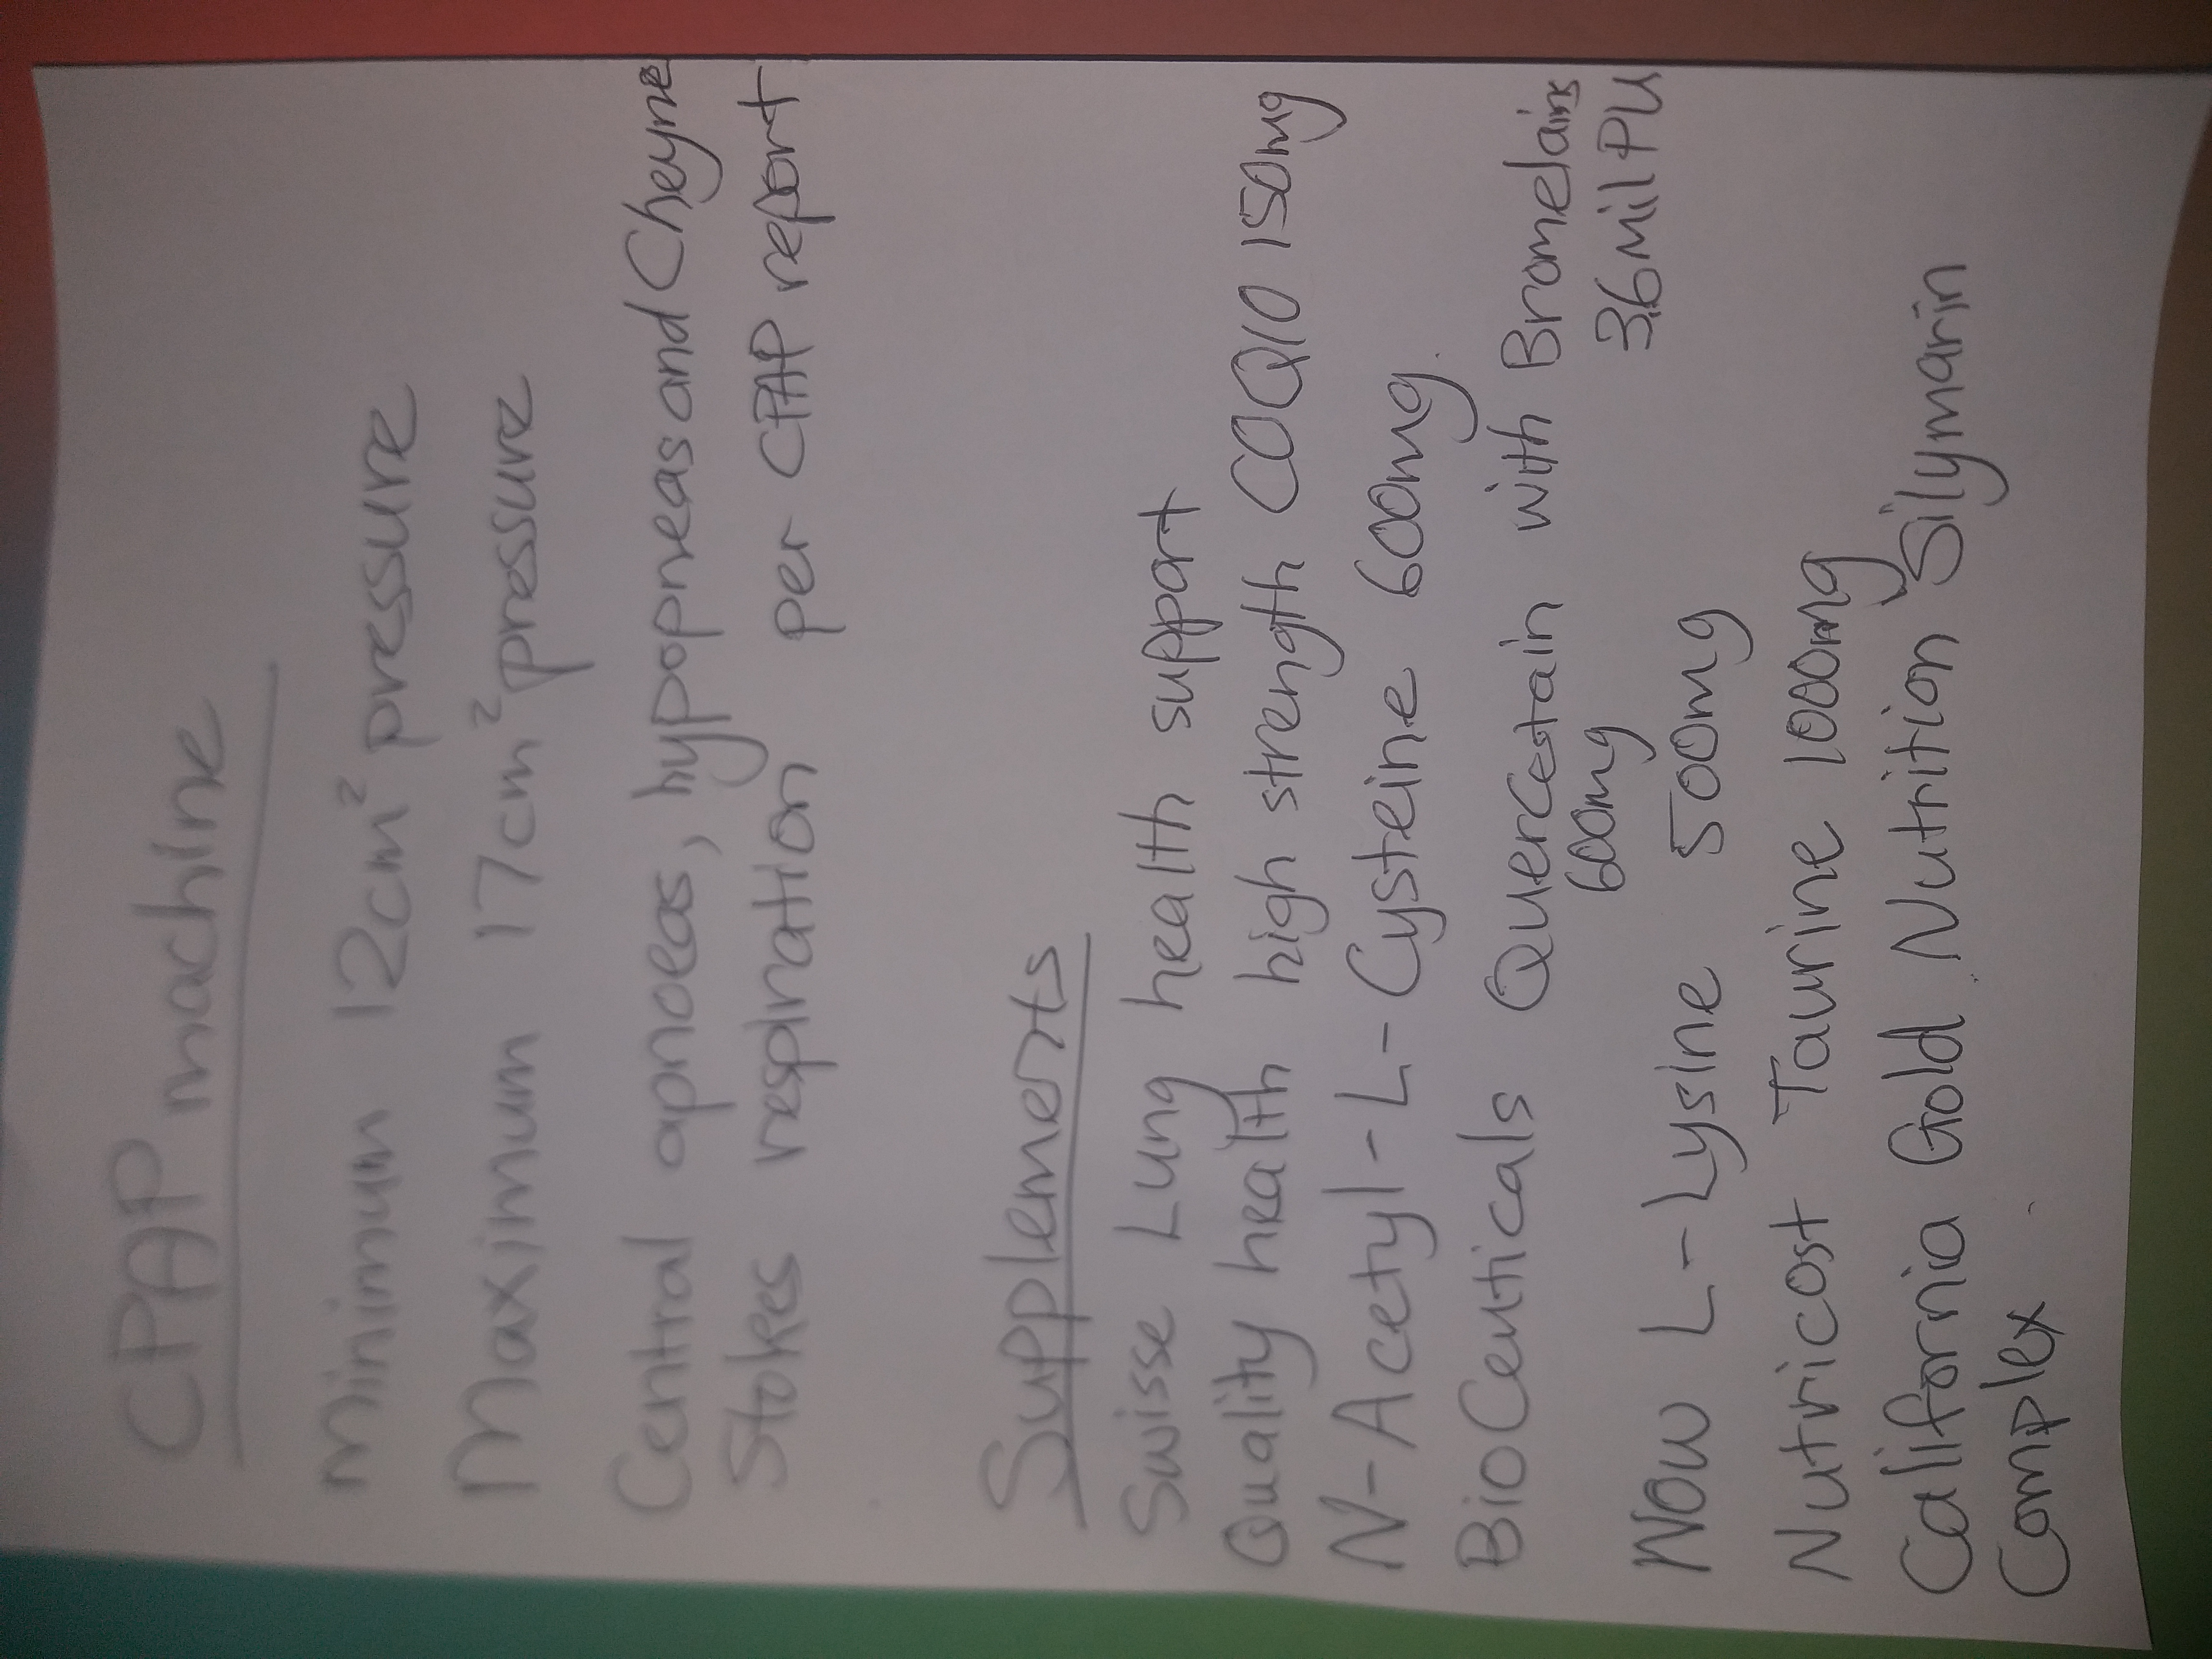 CPAP machine
Minimum 12cm² pressure
Maximum 17cm² pressure
Central apnoeas, hypopneas and Cheyne
Stokes respiration per CPAP report
Supplements
Swisse Lung health support
Quality health high strength COQ10 150mg
N-Acetyl-L-Cysteine 600mg
BioCeuticals Quercestain with Bromelains
600mg 3.6 mil PU
Now L-Lysine 500mg
Nutricost Taurine 1000mg
California Gold Nutrition Silymarin
Complex